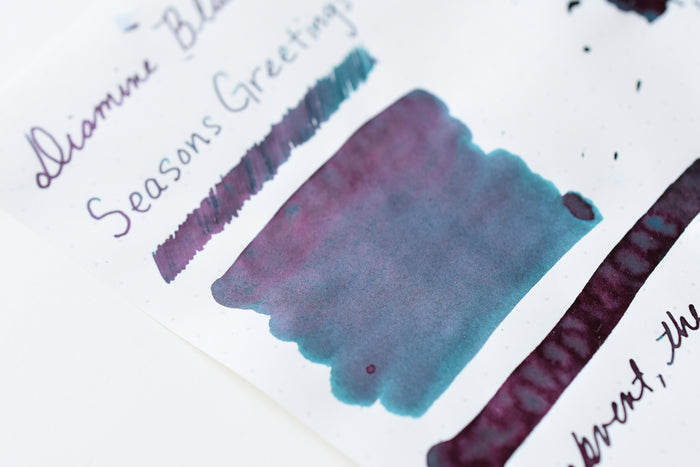 Diamine Blu
Seasons Greetings
the